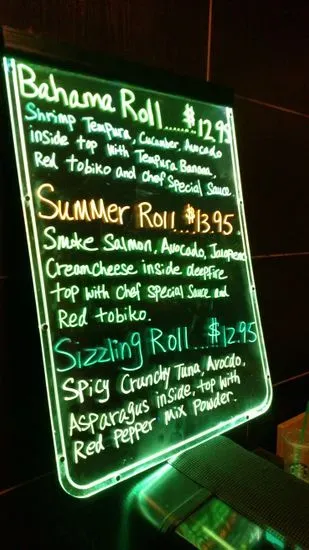 Bahama Roll ...... $12.95
Shrimp Tempura, Cucumber, Avocado
inside top with Tempura Banana,
Red tobiko and chef Special Sauce.
Summer Roll ... $13.95
Smoke Salmon, Avocado, Jalapeno
Creamcheese inside deepfire
top with Chef Special Sauce and
Red tobiko.
Sizzling Roll ... $12.95
Spicy Crunchy Tuna, Avocado,
Asparagus inside, top with
Red Pepper Mix Powder.